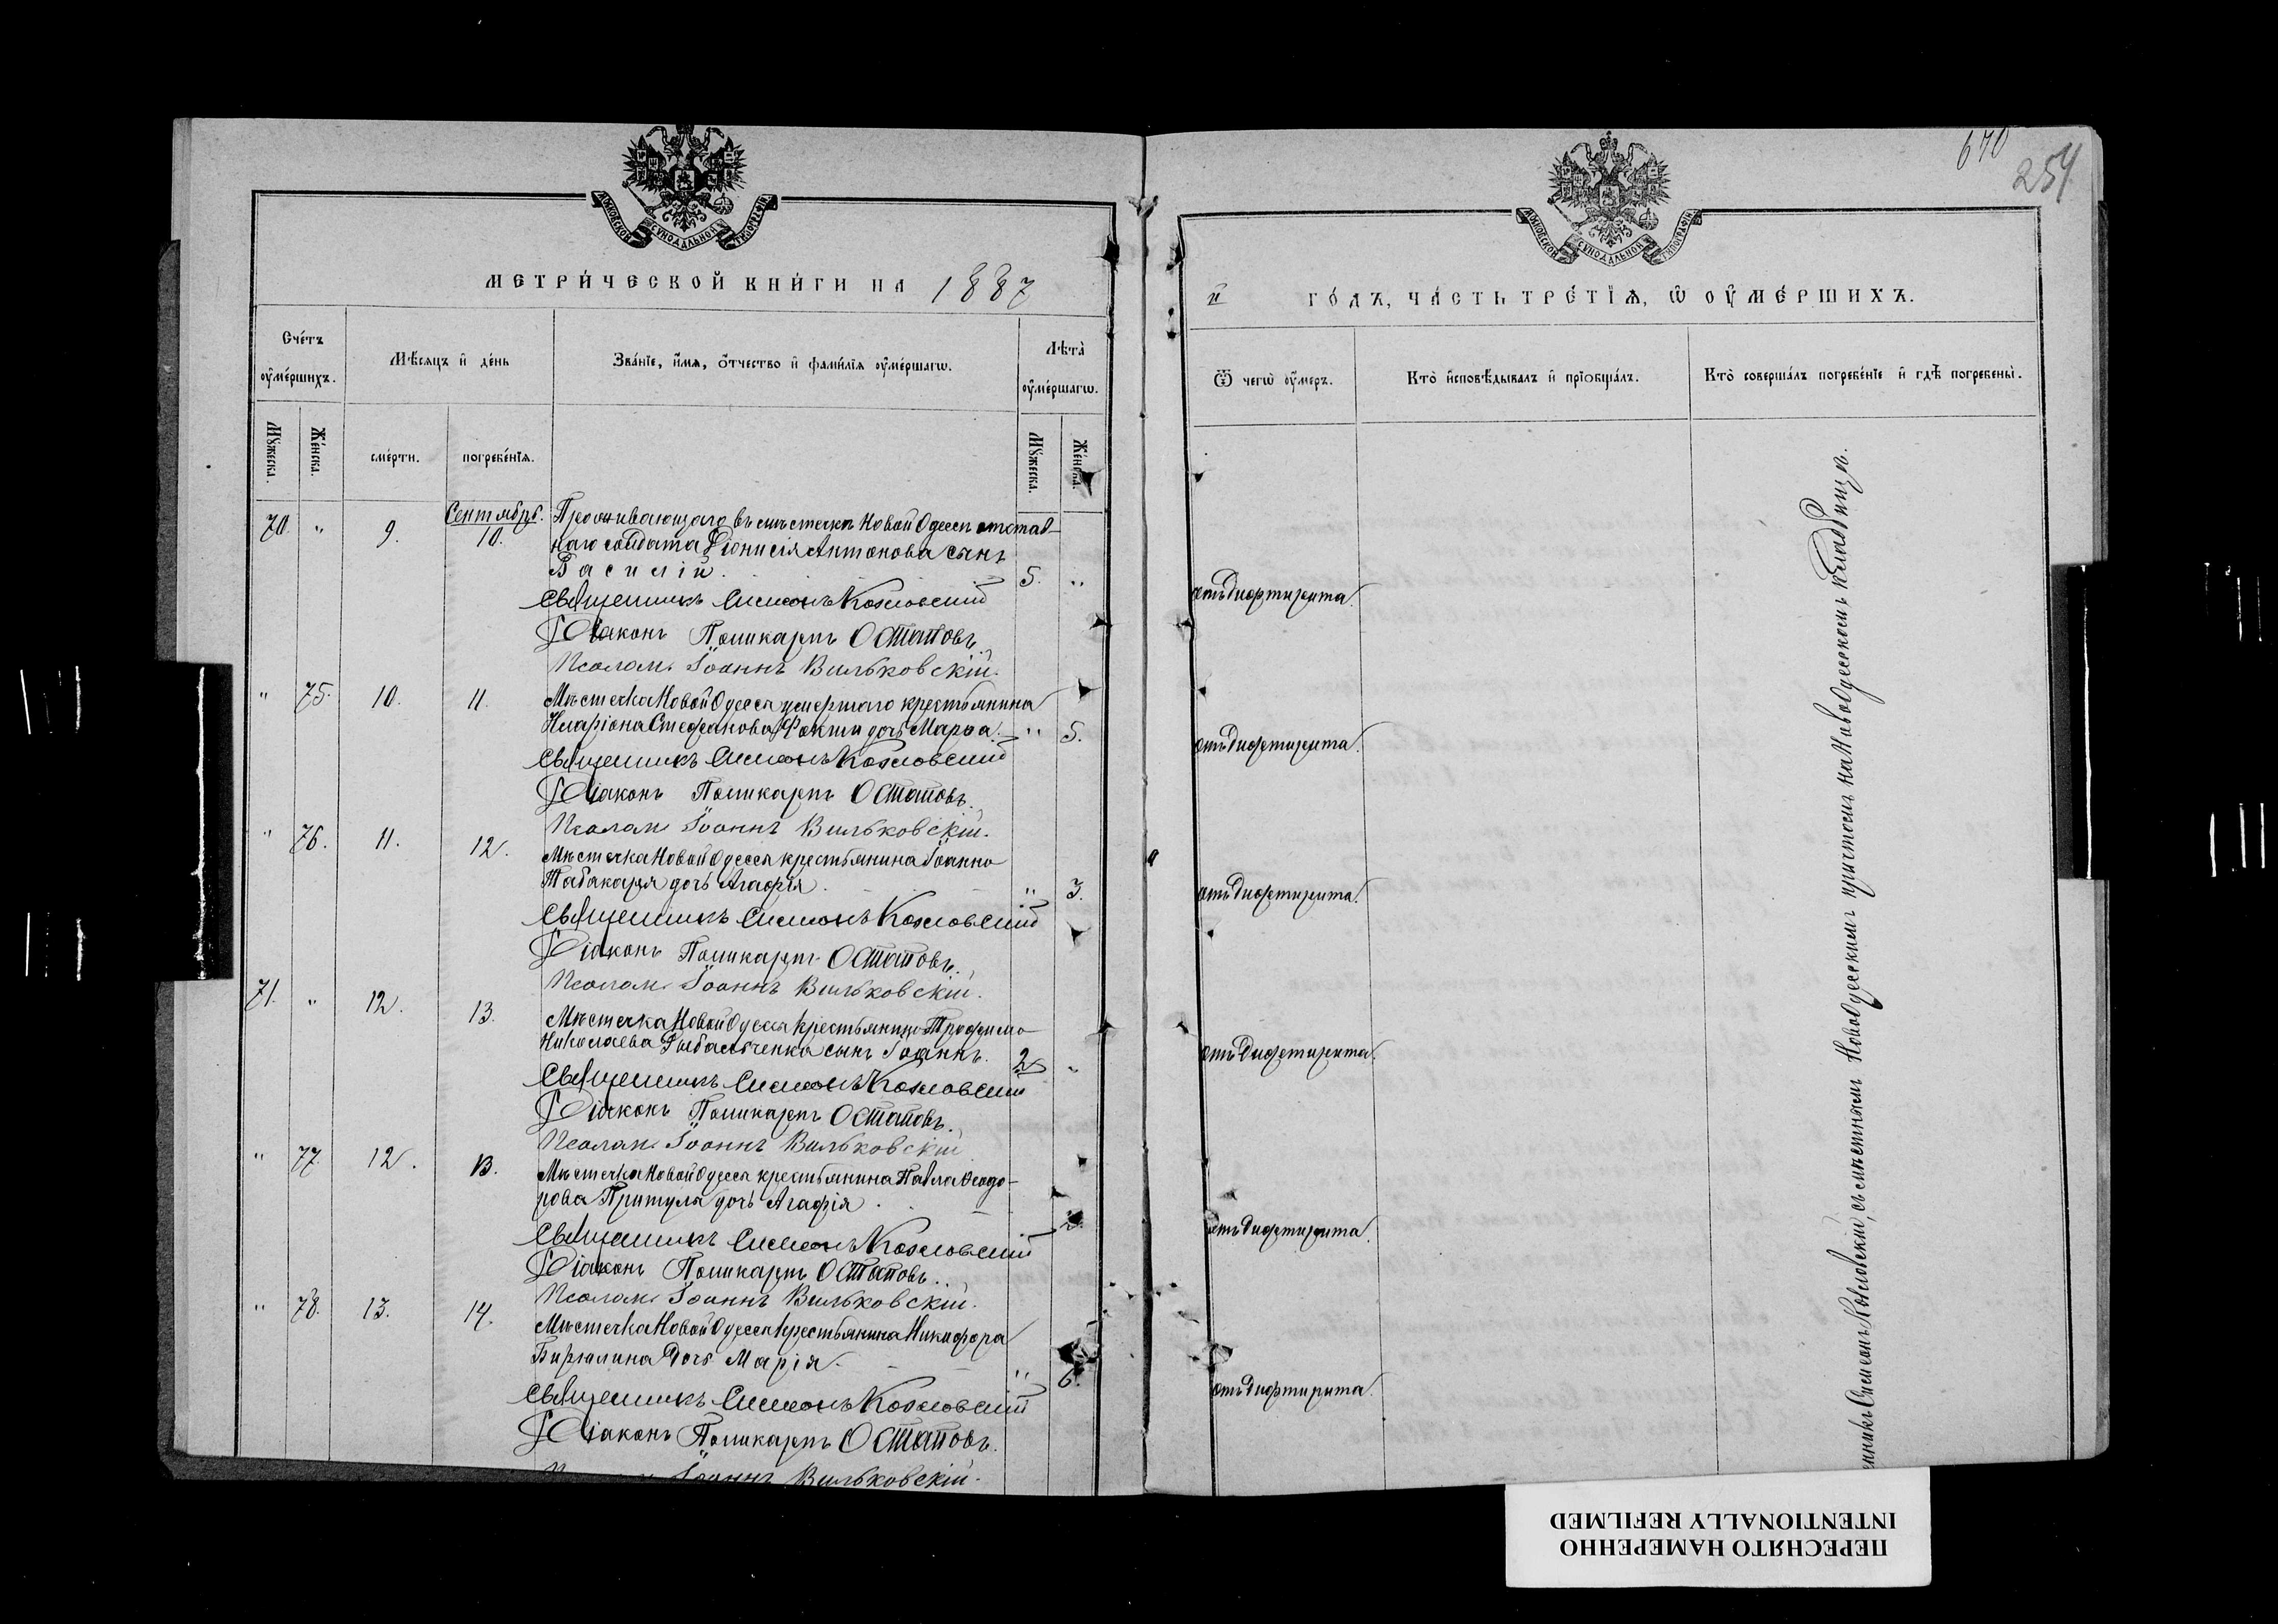 МОСКОВСКОЙ СѴНОДАЛЬНОЙ ТИПОГРАФІИ
МЕТРИ́ЧЕСКОЙ КНИ́ГИ НА 1887
Сче́тъ ᲂу҆ме́ршихъ.
Мѣ́сяцъ и҆ де́нь
Зва́нїе, и҆́мя, ѻ҆́тчество и҆ фами́лїя ᲂу҆ме́ршагѡ.
Лѣта̀ ᲂу҆ме́ршагѡ.
Мꙋ́жеска.
Же́нска.
сме́рти.
погребе́нїѧ.
Мꙋ́жеска.
Же́нска.
Сентябрь.
70. " 9. 10. Проживающаго въ мѣстечкѣ Новой Одессѣ отстав-
наго солдата Діонисія Антонова сынъ
Василій. 5. "
Священникъ Симеонъ Козловскій
Діаконъ Поликарпъ Остаповъ.
Псалом. Іоаннъ Вильковскій.
" 75. 10. 11. Мѣстечка Новой Одессы умершаго крестьянина
Иларіона Стефанова Фокши дочь Марѳа. " 5.
Священникъ Симеонъ Козловскій
Діаконъ Поликарпъ Остаповъ.
Псалом. Іоаннъ Вильковскій.
" 76. 11. 12. Мѣстечка Новой Одессы крестьянина Іоанна
Табакаря дочь Агафія. " 3.
Священникъ Симеонъ Козловскій
Діаконъ Поликарпъ Остаповъ.
Псалом. Іоаннъ Вильковскій.
71. " 12. 13. Мѣстечка Новой Одессы крестьянина Трофима
Николаева Рыбальченка сынъ Іоаннъ. 2 "
Священникъ Симеонъ Козловскій
Діаконъ Поликарпъ Остаповъ.
Псалом. Іоаннъ Вильковскій
" 77. 12. 13. Мѣстечка Новой Одессы крестьянина Павла Ѳеодо-
рова Притула дочь Агафія.
Священникъ Симеонъ Козловскій
Діаконъ Поликарпъ Остаповъ.
Псалом. Іоаннъ Вильковскій.
" 78. 13. 14. Мѣстечка Новой Одессы крестьянина Никифора
Бирюлина дочь Марія. " 6.
Священникъ Симеонъ Козловскій
Діаконъ Поликарпъ Остаповъ.
Іоаннъ Вильковскій.
670
254
МОСКОВСКОЙ СѴНОДАЛЬНОЙ ТИПОГРАФІИ
й ГО́ДЪ, ЧА́СТЬ ТРЕ́ТЇѦ, Ѡ҆ ОУ҆МЕ́РШИХЪ.
Ѿ чегѡ̀ ᲂу҆́меръ.
Кто̀ и҆сповѣ́дывалъ и҆ прїѻбща́лъ.
Кто̀ соверша́лъ погребе́нїе и҆ гдѣ̀ погребены̀.
отъ дифтирита.
отъ дифтирита.
отъ дифтирита.
отъ дифтирита.
отъ дифтирита.
отъ дифтирита.
Симеонъ Козловскій, съ мѣстнымъ Новоодесскимъ причтомъ на Новоодесскомъ кладбищѣ.
ПЕРЕСНЯТО НАМЕРЕННО
INTENTIONALLY REFILMED